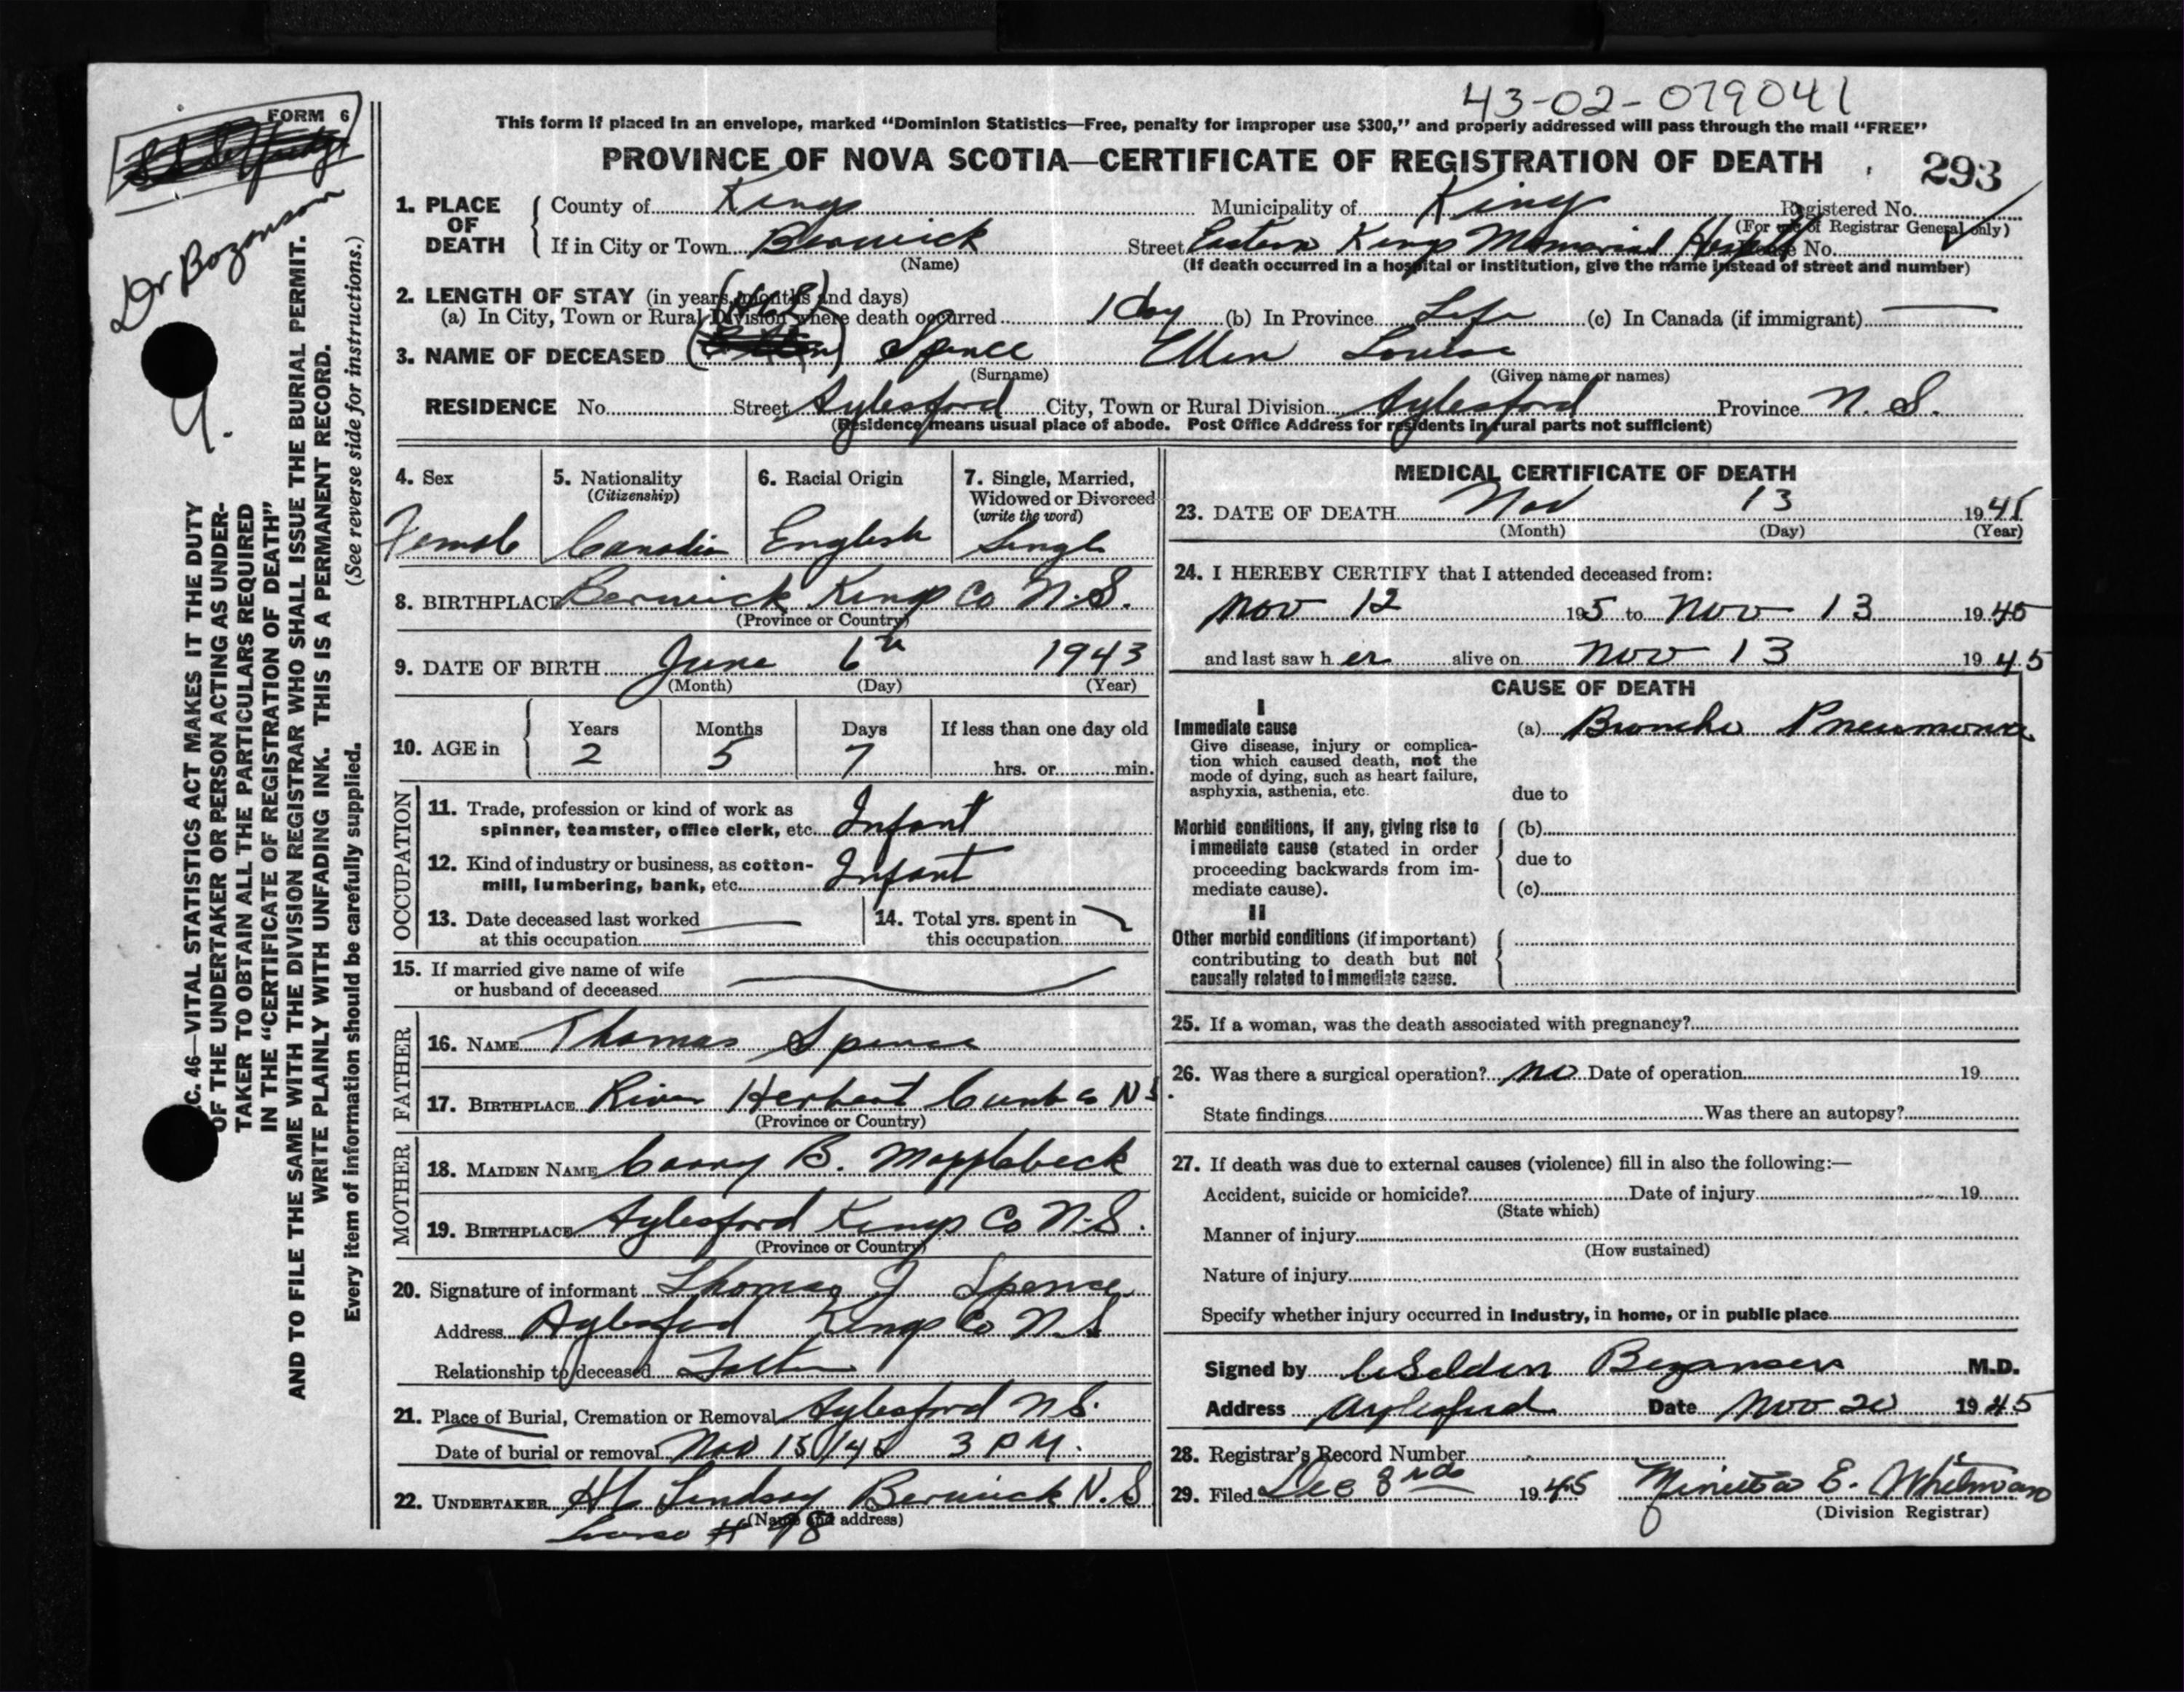 43-02-079041
FORM 6
This form if placed in an envelope, marked "Dominion Statistics—Free, penalty for improper use $300," and properly addressed will pass through the mail "FREE"
PROVINCE OF NOVA SCOTIA—CERTIFICATE OF REGISTRATION OF DEATH
293
Dr Bozanson
9.
C. 46—VITAL STATISTICS ACT MAKES IT THE DUTY
OF THE UNDERTAKER OR PERSON ACTING AS UNDER-
TAKER TO OBTAIN ALL THE PARTICULARS REQUIRED
IN THE "CERTIFICATE OF REGISTRATION OF DEATH"
AND TO FILE THE SAME WITH THE DIVISION REGISTRAR WHO SHALL ISSUE THE BURIAL PERMIT.
WRITE PLAINLY WITH UNFADING INK. THIS IS A PERMANENT RECORD.
Every item of information should be carefully supplied. (See reverse side for instructions.)
1. PLACE OF DEATH
County of Kings Municipality of Kings Registered No.
(For use of Registrar General only)
If in City or Town Berwick Street Eastern Kings Memorial Hospital House No.
(Name) (If death occurred in a hospital or institution, give the name instead of street and number)
2. LENGTH OF STAY (in years, months and days)
(a) In City, Town or Rural Division where death occurred 1 day (b) In Province Life (c) In Canada (if immigrant) —
3. NAME OF DECEASED Spence Ellen Louise
(Surname) (Given name or names)
RESIDENCE No. Street Aylesford City, Town or Rural Division Aylesford Province N. S.
(Residence means usual place of abode. Post Office Address for residents in rural parts not sufficient)
4. Sex
Female
5. Nationality
(Citizenship)
Canadian
6. Racial Origin
English
7. Single, Married,
Widowed or Divorced
(write the word)
Single
8. BIRTHPLACE Berwick Kings Co N.S.
(Province or Country)
9. DATE OF BIRTH June 6th 1943
(Month) (Day) (Year)
10. AGE in Years Months Days If less than one day old
2 5 7 hrs. or min.
OCCUPATION
11. Trade, profession or kind of work as
spinner, teamster, office clerk, etc. Infant
12. Kind of industry or business, as cotton-
mill, lumbering, bank, etc. Infant
13. Date deceased last worked
at this occupation —
14. Total yrs. spent in
this occupation
15. If married give name of wife
or husband of deceased
FATHER
16. NAME Thomas Spence
17. BIRTHPLACE River Herbert Cumb Co N S.
(Province or Country)
MOTHER
18. MAIDEN NAME B. Mapplebeck
19. BIRTHPLACE Aylesford Kings Co N.S.
(Province or Country)
20. Signature of informant Thomas J Spence
Address Aylesford Kings Co N.S.
Relationship to deceased Father
21. Place of Burial, Cremation or Removal Aylesford N.S.
Date of burial or removal Nov 15/45 3 PM.
22. UNDERTAKER Lindsay Berwick N.S
(Name and address)
# 98
MEDICAL CERTIFICATE OF DEATH
23. DATE OF DEATH Nov 13 1945
(Month) (Day) (Year)
24. I HEREBY CERTIFY that I attended deceased from:
Nov 12 195 to Nov 13 1945
and last saw her alive on Nov 13 1945
CAUSE OF DEATH
I
Immediate cause
Give disease, injury or complica-
tion which caused death, not the
mode of dying, such as heart failure,
asphyxia, asthenia, etc.
(a) Broncho Pneumonia
due to
Morbid conditions, if any, giving rise to
immediate cause (stated in order
proceeding backwards from im-
mediate cause).
(b)
due to
(c)
II
Other morbid conditions (if important)
contributing to death but not
causally related to immediate cause.
25. If a woman, was the death associated with pregnancy?
26. Was there a surgical operation? no Date of operation 19
State findings Was there an autopsy?
27. If death was due to external causes (violence) fill in also the following:—
Accident, suicide or homicide? Date of injury 19
(State which)
Manner of injury
(How sustained)
Nature of injury
Specify whether injury occurred in industry, in home, or in public place
Signed by Bezanson M.D.
Address Aylesford Date Nov 20 1945
28. Registrar's Record Number
29. Filed Dec 3rd 1945 E. Whitman
(Division Registrar)